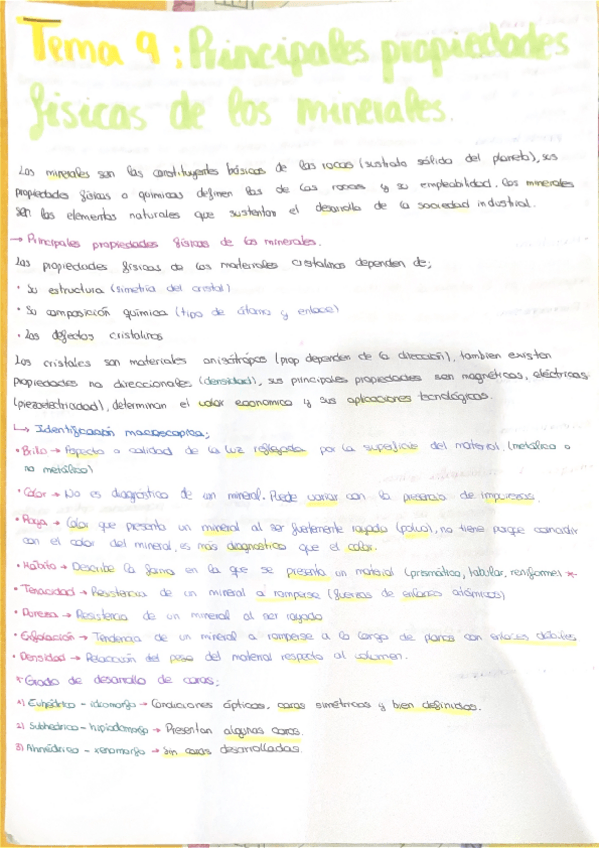 Tema 9: Principales propiedades
físicas de los minerales.
Los minerales son los constituyentes básicos de las rocas (sustrato sólido del planeta), sus
propiedades físicas o químicas definen las de las rocas y su empleabilidad. Los minerales
son los elementos naturales que sustentan el desarrollo de la sociedad industrial.
→ Principales propiedades físicas de los minerales.
Las propiedades físicas de los materiales cristalinos dependen de;
· Su estructura (simetría del cristal)
· Su composición química (tipo de átomo y enlace)
· Los defectos cristalinos
Los cristales son materiales anisótropos (prop dependen de la dirección), tambien existen
propiedades no direccionales (densidad), sus principales propiedades son magnéticas, eléctricas
(piezoelectricidad), determinan el valor economico y sus aplicaciones tecnológicas.
↳ Identificación macroscopica;
· Brillo → Aspecto o calidad de la luz reflejada por la superficie del material. (metálico o
no metálico)
· Color → No es diagnóstico de un mineral. Puede variar con la presencia de impurezas.
· Raya → Color que presenta un mineral al ser fuertemente rayado (polvo), no tiene porque coincidir
con el color del mineral, es más diagnostico que el color.
· Hábito → Describe la forma en la que se presenta un material (prismático, tabular, reniforme) *
· Tenacidad → Resistencia de un mineral a romperse (fuerzas de enlaces atómicos)
· Dureza → Resistencia de un mineral al ser rayado
· Exfoliación → Tendencia de un mineral a romperse a lo largo de planos con enlaces débiles
· Densidad → Relacción del peso del material respecto al volumen.
* Grado de desarrollo de caras;
1) Euhédrico - idiomorfo → Condiciones ópticas, caras simétricas y bien definidas.
2) Subhedrico - hipidiomorfo → Presentan algunas caras.
3) Anhédrico - xenomorfo → Sin caras desarrolladas